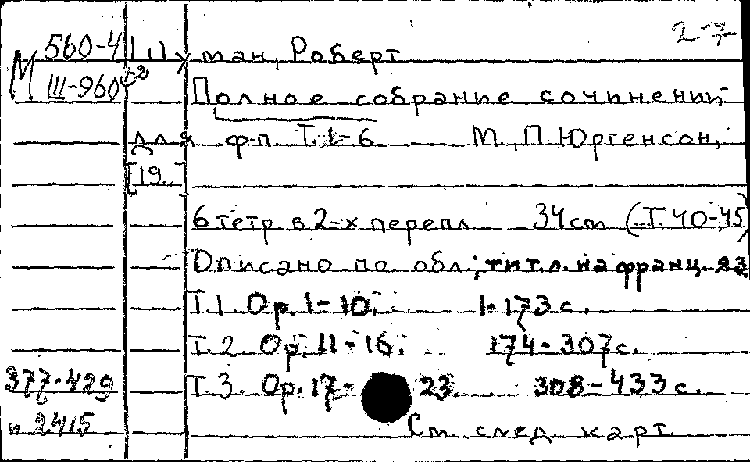 2-7
М 560-4 Шуман, Роберт
III-960
Полное собрание сочинений
для ф-п. Т. 1-6 М., П. Юргенсон,
[19..]
6 тетр в 2-х перепл 34 cm (Т. 40-45)
Описано по обл.; тит. л. на франц. яз
Т. 1. Op. 1-10. 1-173 с.
Т. 2. Op. 11-16. 174-307 с.
377-429 Т. 3. Op. 17-23. 308-433 с.
и 2415 См. след карт